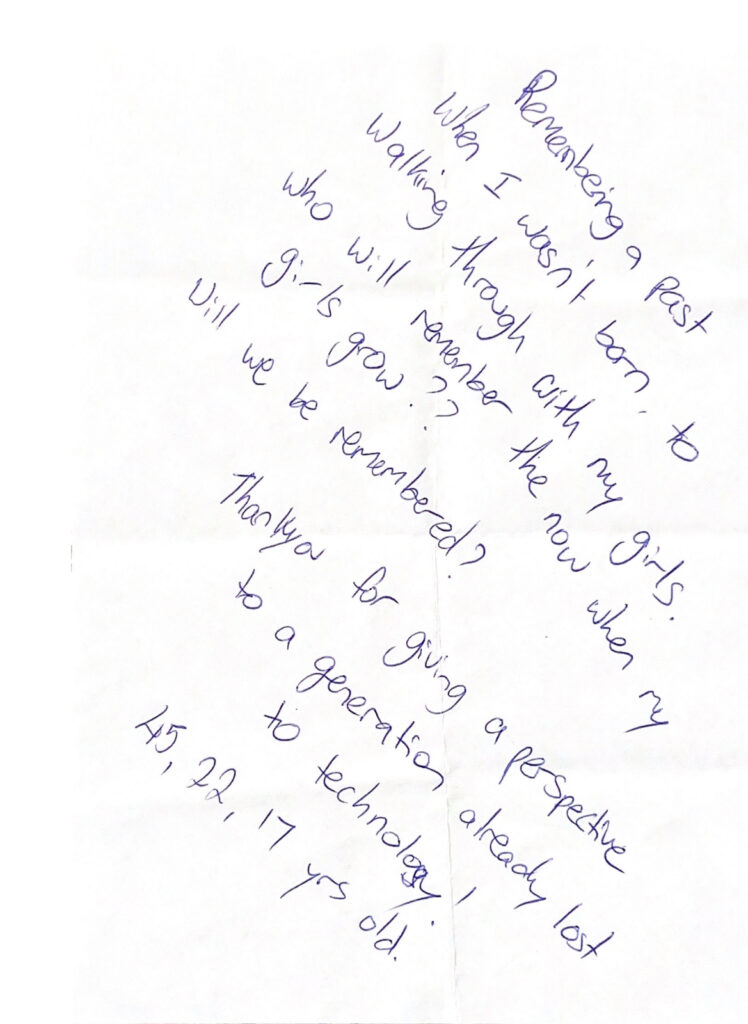 Remembeing a past
when I wasn't born, to
walking through with my girls.
who will remember the now when my
girls grow??
will we be remembered?
Thankyou for giving a perspective
to a generation already lost
to technology!
45, 22, 17 yrs old.